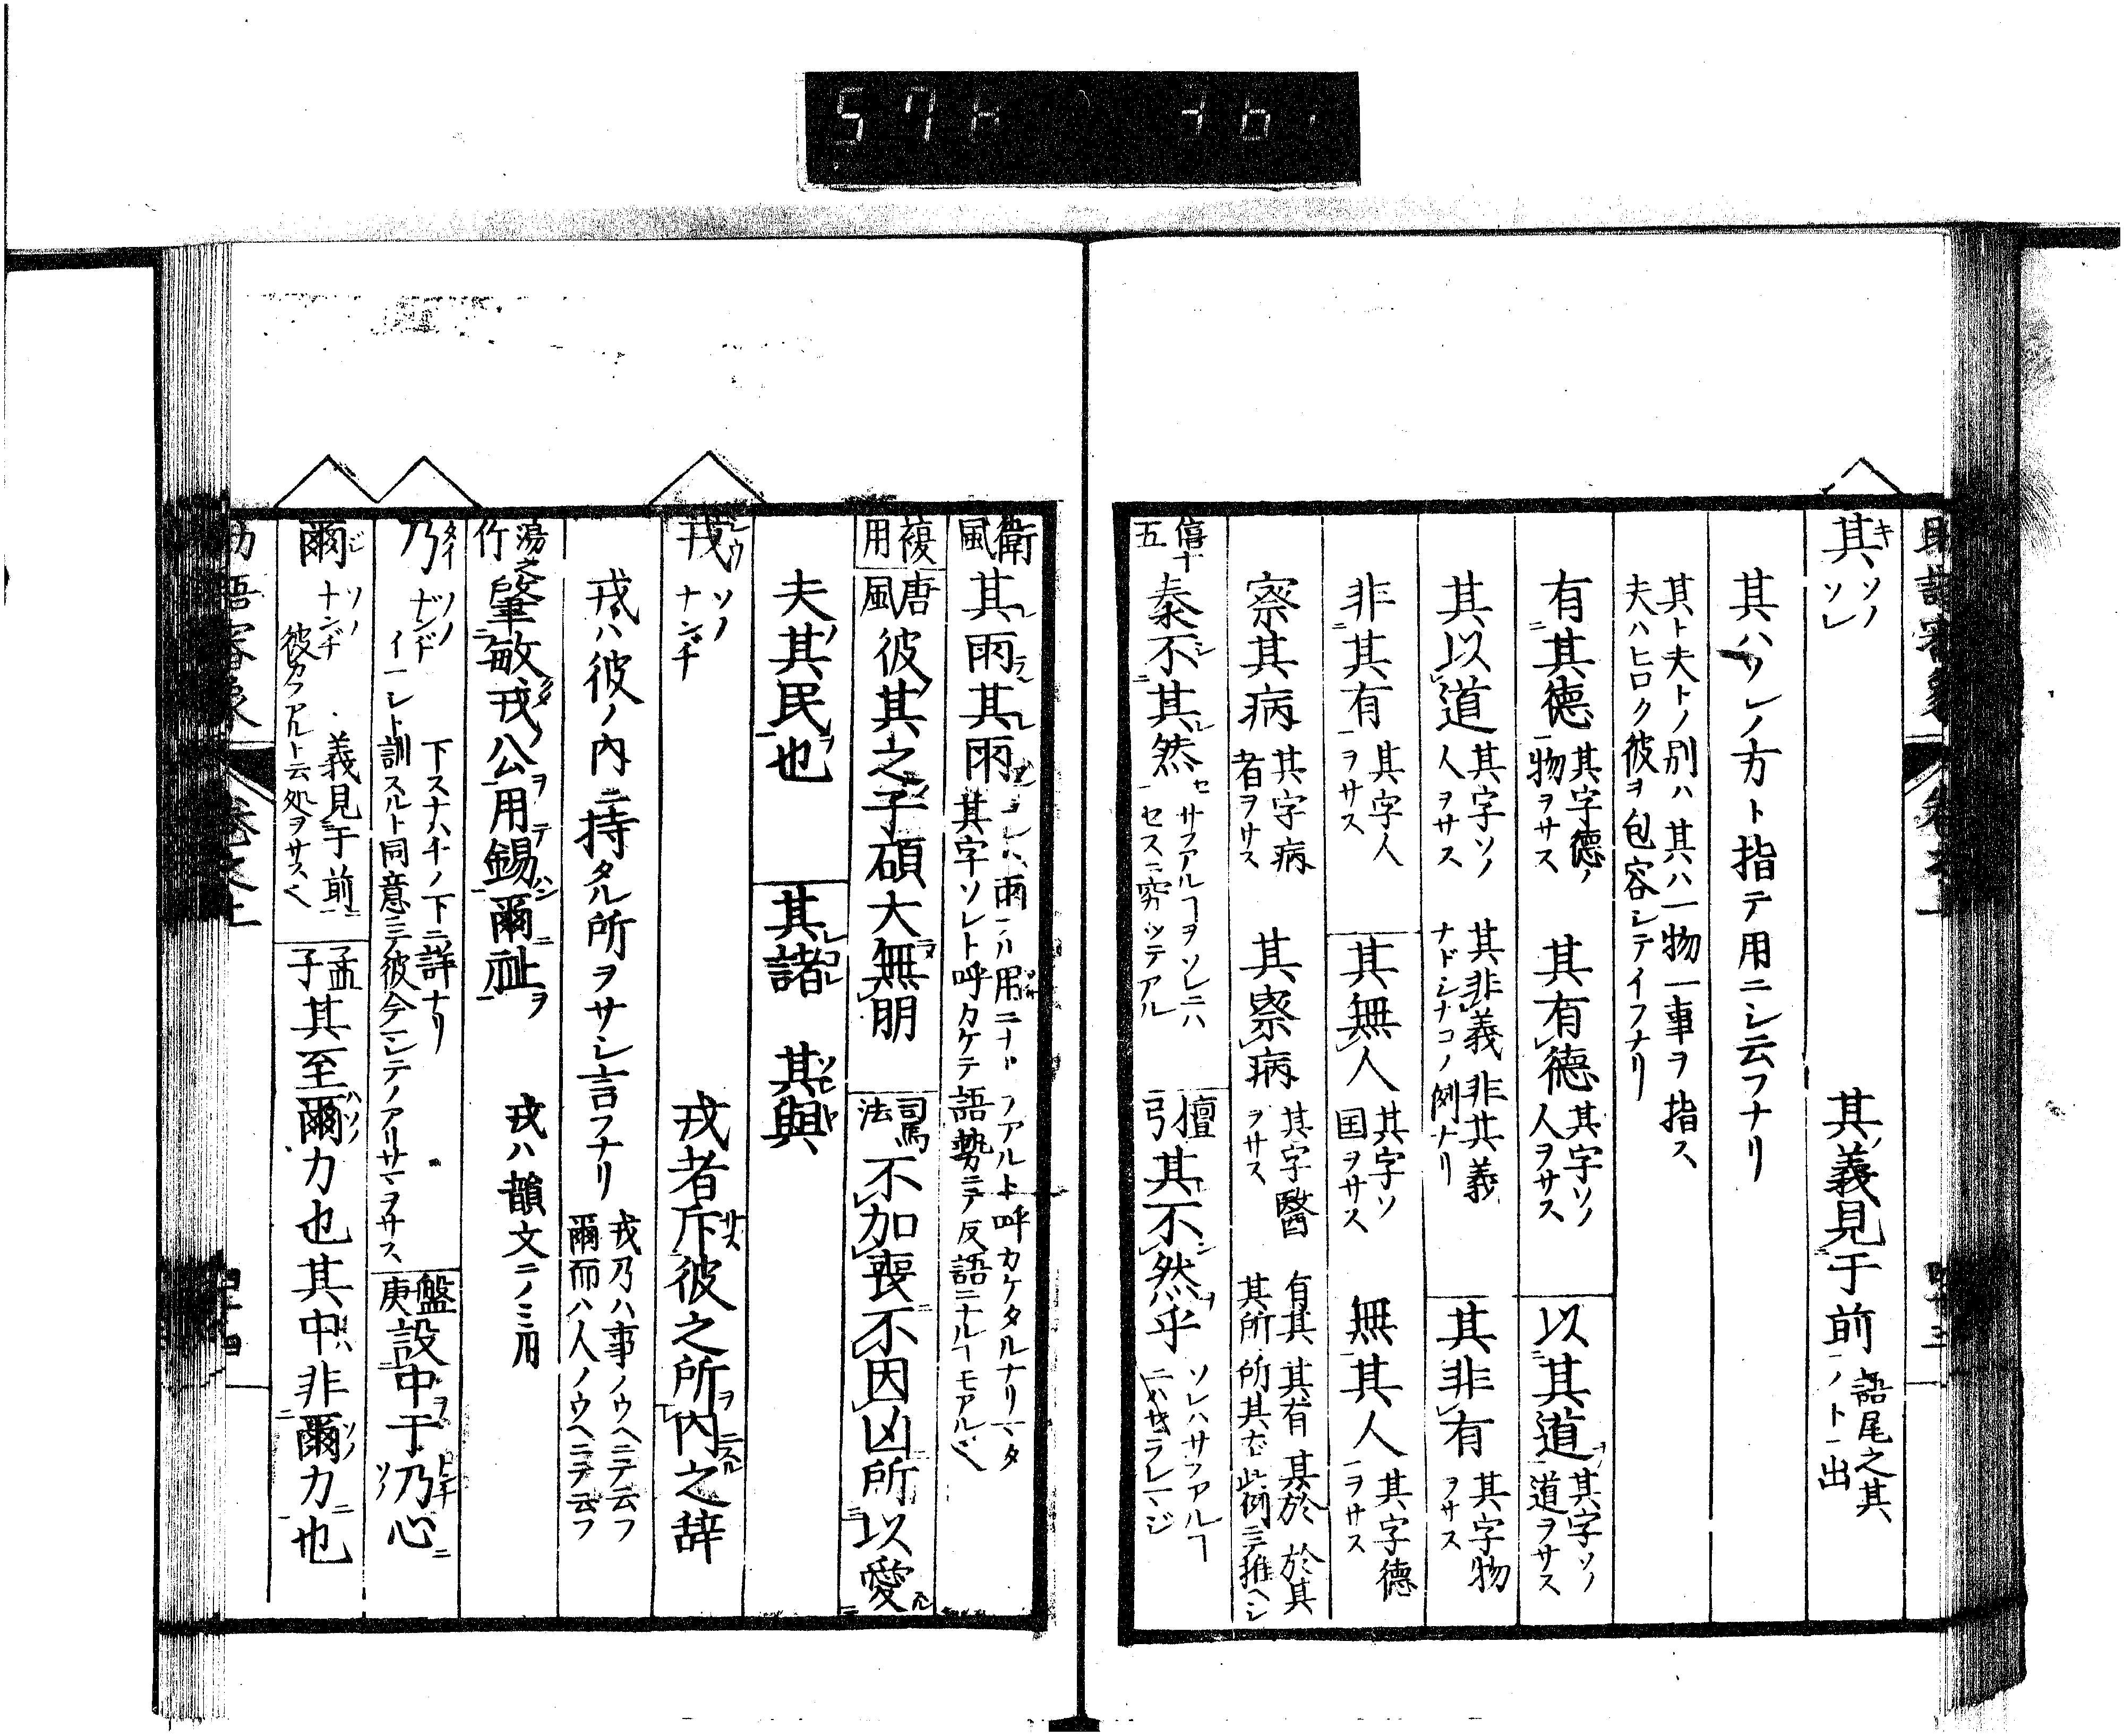 其 キ ソノ ソレ 其義見于前 語尾之其ノト一出
其ハソレノ方ト指テ用ニシ云フナリ
其ト夫トノ別ハ其ハ一物一事ヲ指ス
夫ハヒロク彼ヲ包容シテイフナリ
有其徳 其字徳ノ物ヲサス 其有徳 其字ソノ人ヲサス 以其道 其字ソノ道ヲサス
其以道 其字ソノ人ヲサス 其非義非其義ナドシナコノ例ナリ 其非有 其字物ヲサス
非其有 其字人ヲサス 其無人 其字ソ国ヲサス 無其人 其字徳ヲサス
察其病 其字病者ヲサス 其察病 其字醫ヲサス 有其 其有 其於 於其 其所 所其 此例ニテ推ヘシ
僖十五 秦不其然 サフアルヿヲソレニハセスニ 檀弓 其不然乎 ソレハサフアルヿ
衛風 其雨其雨 其字ソレト呼カケテ語勢ニテ反語ニナルヿモアルベ
複用 唐風 彼其之子碩大無朋 司馬法 不加喪不因凶所以愛
夫其民也 其諸 其與
戎 ソノ ナンヂ 戎者斥彼之所内之辞
戎ハ彼ノ内ニ持タル所ヲサシ言フナリ 戎乃ハ事ノウヘニテ云フ 爾而ハ人ノウヘニテ云フ
肇敏戎公用錫爾祉 戎ハ韻文ニノミ用
乃 ダイ ソノ 下スナハチノ下ニ詳ナリ 訓スルト同意ニテ彼 盤庚 設中于乃心
爾 ジ ソノ ナンヂ 義見于前 彼カフアルト云処ヲサスベ 孟子 其至爾力也其中非爾力也